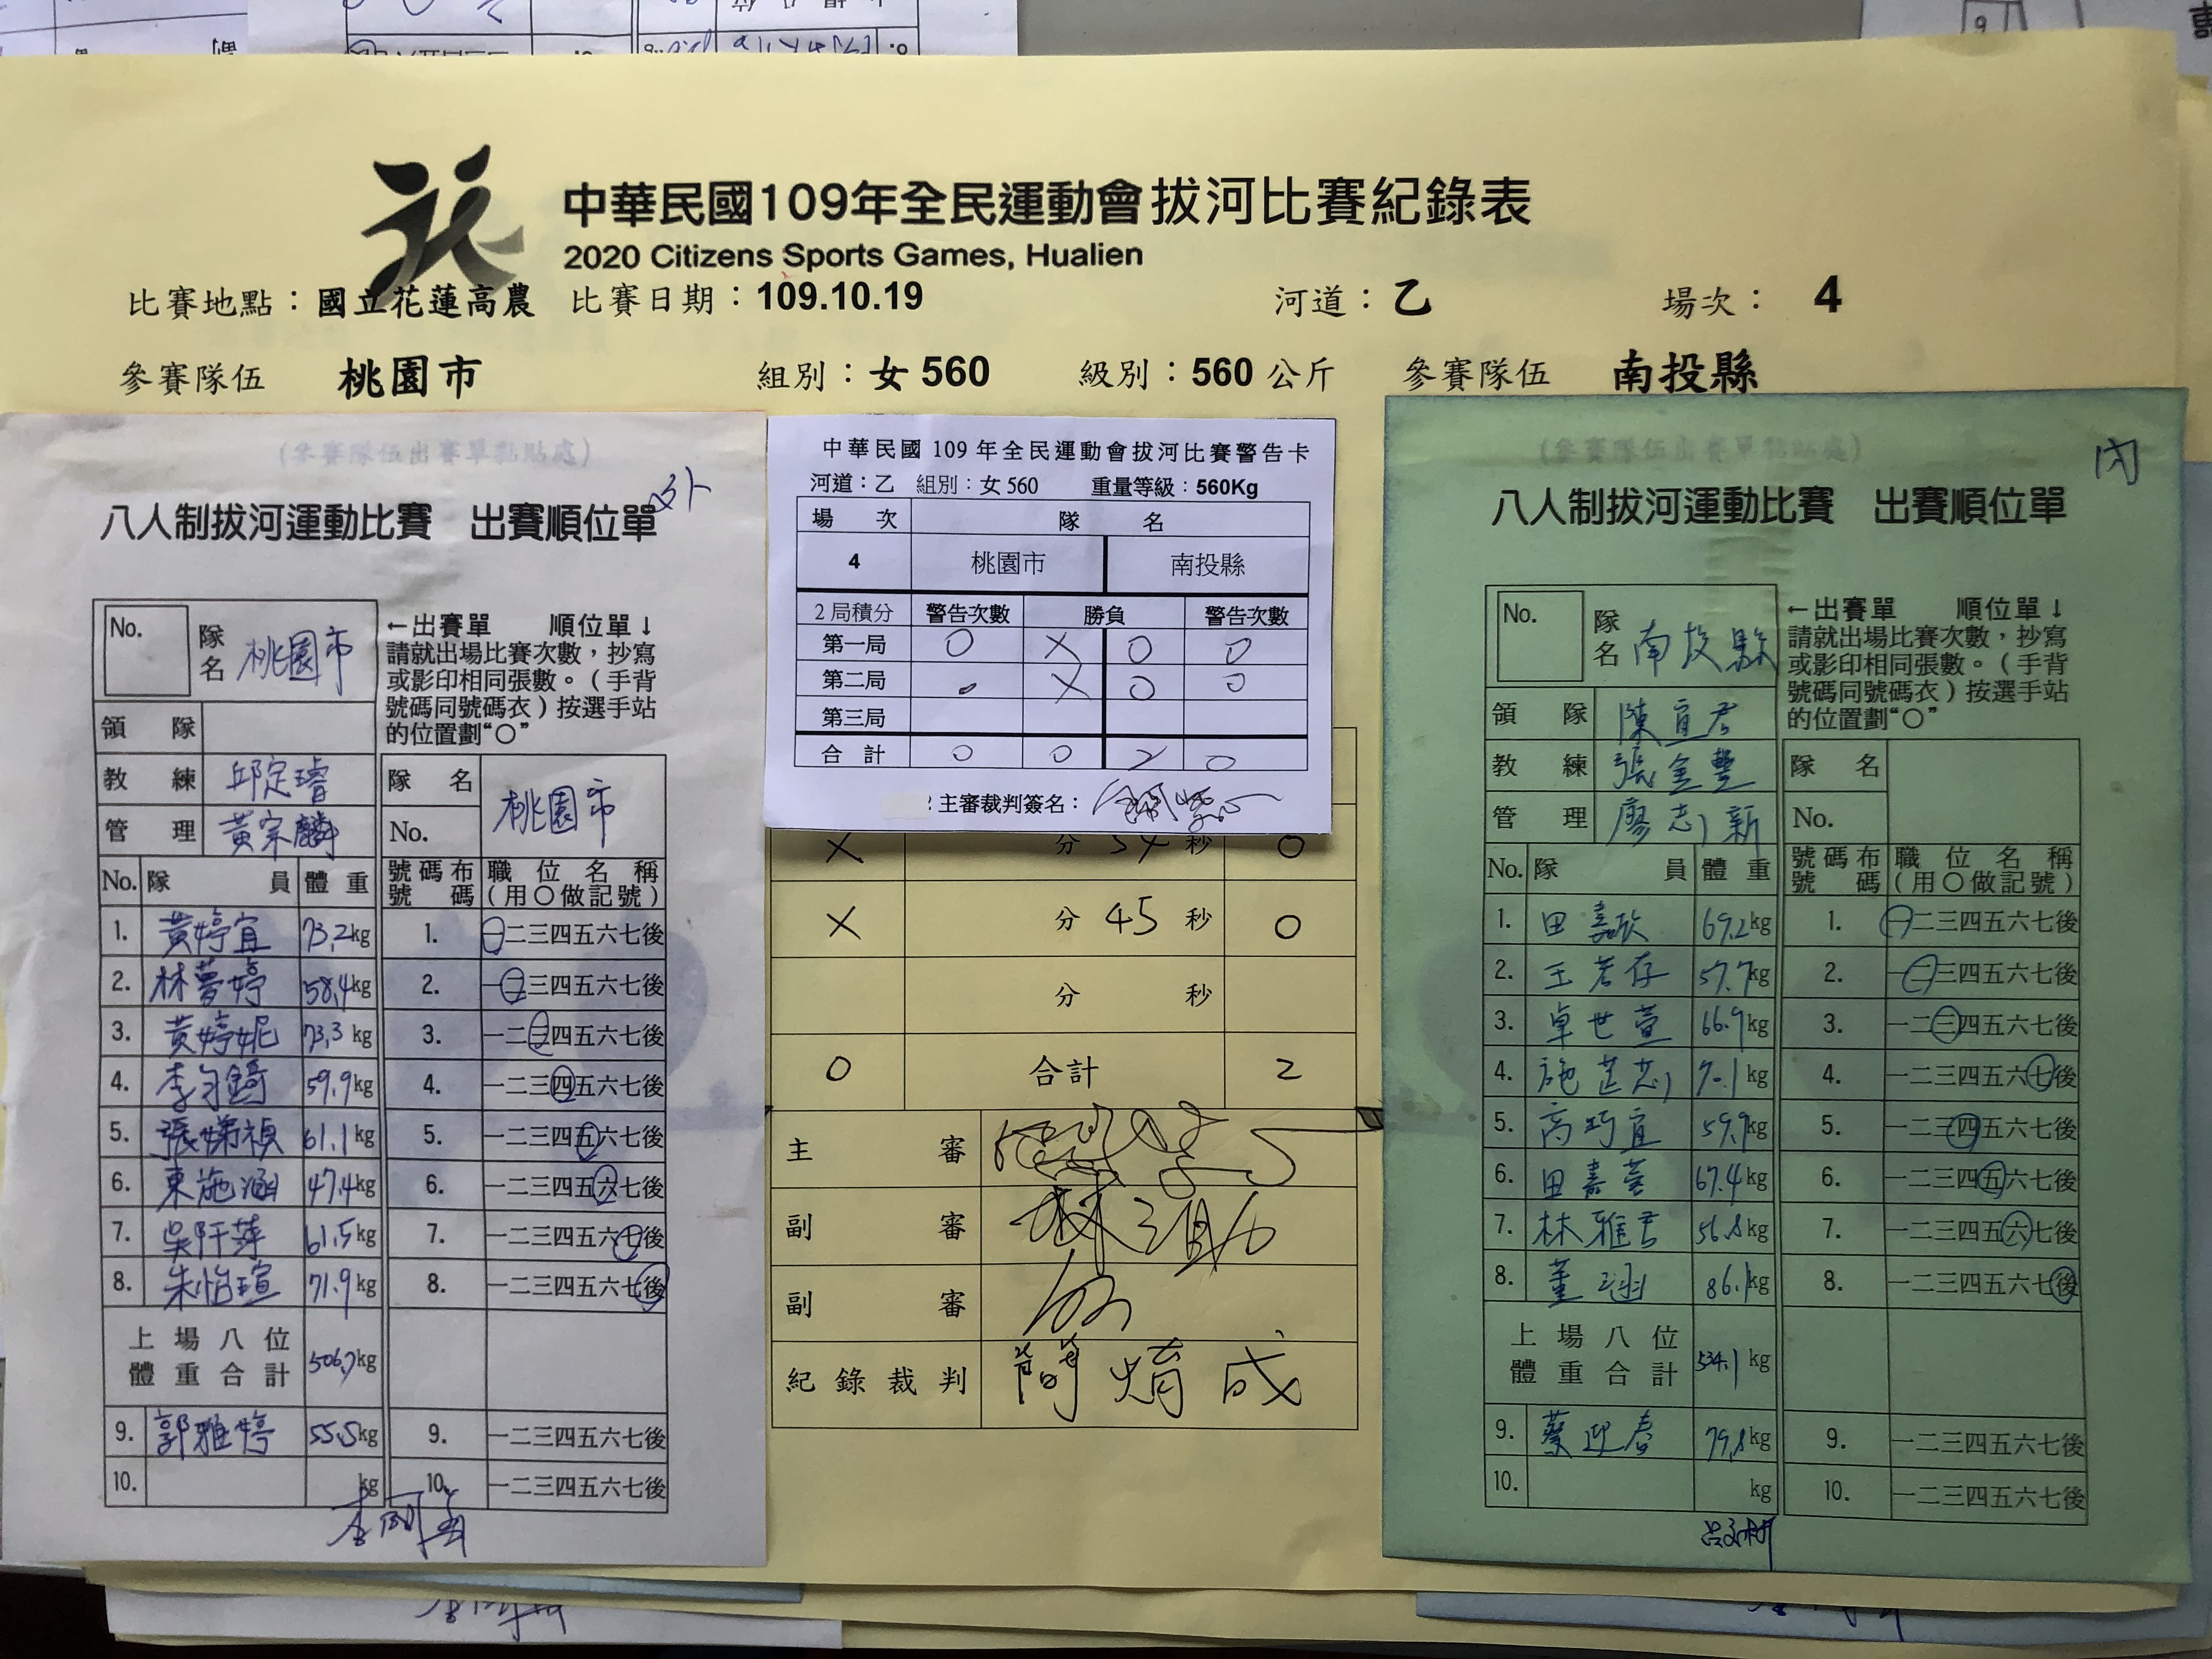 中華民國109年全民運動會拔河比賽紀錄表
2020 Citizens Sports Games, Hualien
比賽地點：國立花蓮高農 比賽日期：109.10.19 河道：乙 場次： 4
參賽隊伍 桃園市 組別：女 560 級別：560 公斤 參賽隊伍 南投縣
(參賽隊伍出賽單黏貼處)
外
八人制拔河運動比賽 出賽順位單
No. 隊名 桃園市
←出賽單 順位單↓
請就出場比賽次數，抄寫
或影印相同張數。（手背
號碼同號碼衣）按選手站
的位置劃“○”
領隊
教練 邱定璿 隊名 桃園市
管理 黃宗麟 No.
No. 隊員 體重 號碼布號碼 職位名稱（用○做記號）
1. 黃婷宜 73.2kg 1. 一二三四五六七後
2. 林夢婷 58.4kg 2. 一二三四五六七後
3. 黃婷妮 73.3 kg 3. 一二三四五六七後
4. 59.9kg 4. 一二三四五六七後
5. 61.1kg 5. 一二三四五六七後
6. 47.4kg 6. 一二三四五六七後
7. 61.5kg 7. 一二三四五六七後
8. 朱怡瑄 71.9kg 8. 一二三四五六七後
上場八位體重合計 506.7kg
9. 郭雅婷 55.5kg 9. 一二三四五六七後
10. kg 10. 一二三四五六七後
中華民國 109 年全民運動會拔河比賽警告卡
河道：乙 組別：女 560 重量等級：560Kg
場次 隊名
4 桃園市 南投縣
2 局積分 警告次數 勝負 警告次數
第一局 0 X 0 0
第二局 X 0 0
第三局
合計 0 0 2 0
主審裁判簽名：
X 分 34 秒 0
X 分 45 秒 0
分 秒
0 合計 2
主審
副審
副審
紀錄裁判
(參賽隊伍出賽單黏貼處)
內
八人制拔河運動比賽 出賽順位單
No. 隊名 南投縣
←出賽單 順位單↓
請就出場比賽次數，抄寫
或影印相同張數。（手背
號碼同號碼衣）按選手站
的位置劃“○”
領隊 陳宜君
教練 張金豐 隊名
管理 廖志新 No.
No. 隊員 體重 號碼布號碼 職位名稱（用○做記號）
1. 田嘉欣 69.2kg 1. 一二三四五六七後
2. 王若存 57.7kg 2. 一二三四五六七後
3. 卓世萱 66.9kg 3. 一二三四五六七後
4. 70.1kg 4. 一二三四五六七後
5. 高巧宜 59.9kg 5. 一二三四五六七後
6. 67.4kg 6. 一二三四五六七後
7. 林雅君 56.8kg 7. 一二三四五六七後
8. 86.1kg 8. 一二三四五六七後
上場八位體重合計 534.1 kg
9. 蔡迎春 79.8kg 9. 一二三四五六七後
10. kg 10. 一二三四五六七後